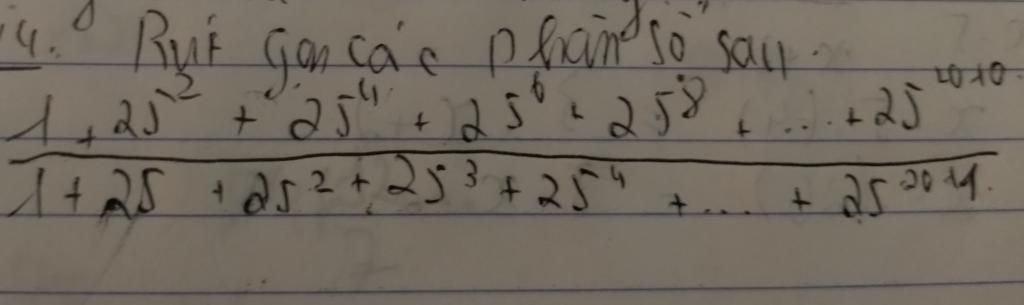 4. Rut gọn các phân số sau
1 + 25² + 25⁴ + 25⁶ + 25⁸ + ... + 25²⁰¹⁰
1 + 25 + 25² + 25³ + 25⁴ + ... + 25²⁰¹¹